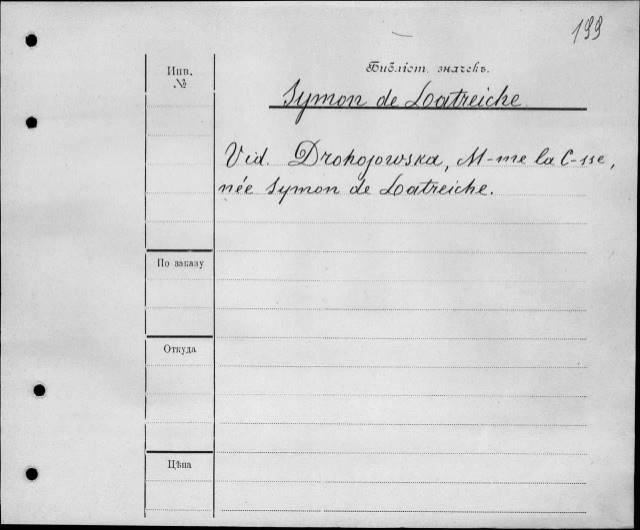 199
Библіот. значекъ.
Инв.
№
Symon de Latreiche
Vid. Drohojowska, M-me la C-sse,
née Symon de Latreiche.
По заказу
Откуда
Цѣна